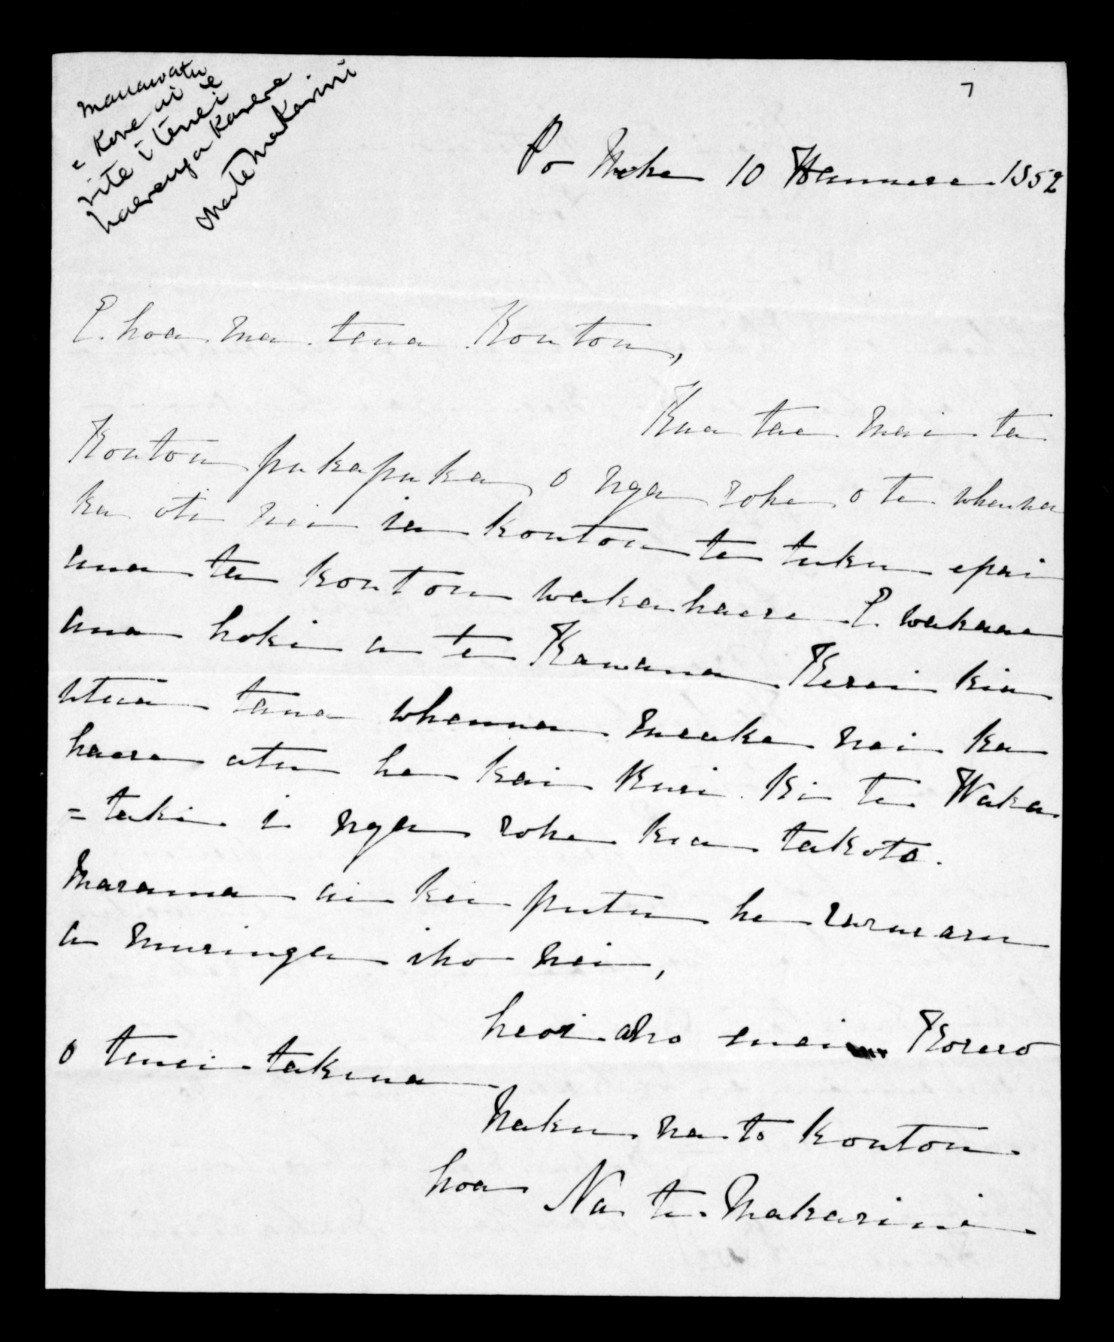 Manawatu
= kore ui e
rite i tenei
haerenga karere
mate Makarini
7
Po Neke 10 Hannuere 1852
E. hoa ma tena Koutou,
Kua tae mai ta
Koutou pukapuka o nga rohe o te whenua
ka oti nei ia koutou te tuku epai
ana ta koutou wakahaere E. wakaae
ana hoki a te Kawana Kerei kia
utua tana whenua meake nei ka
haere atu he kai Ruri ki te Waka
=taki i nga rohe kia takoto
marama ai kei puta he raruraru
a muringa iho nei,
heoi ano enei Korero
o tenei takiwa
Naku na to koutou
hoa Na te Makarini